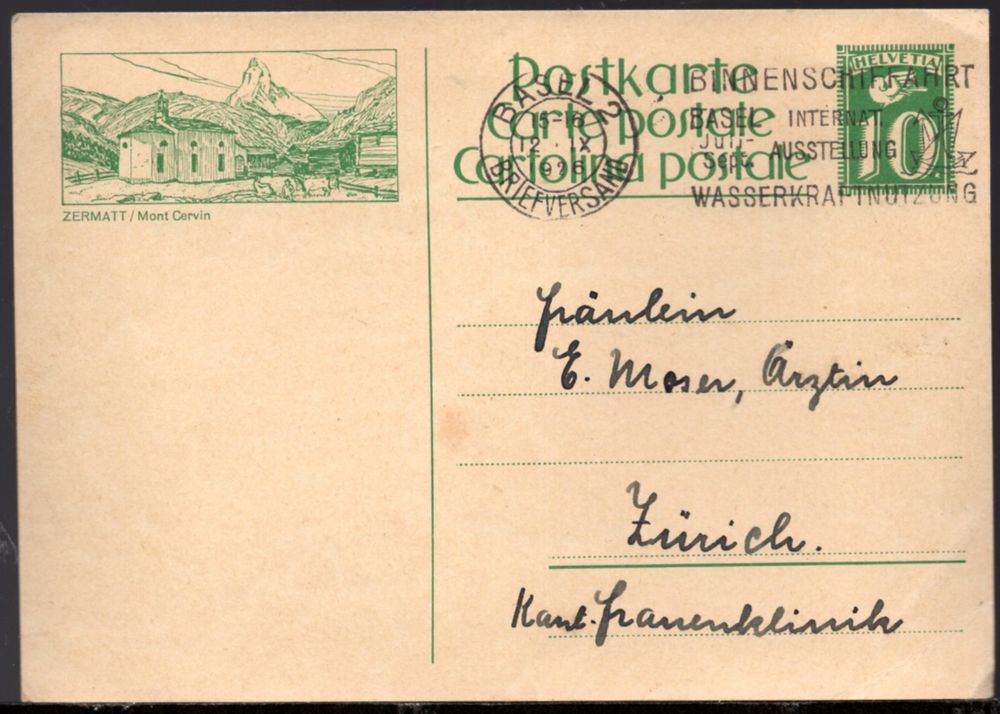 ZERMATT / Mont Cervin
Postkarte
Carte postale
Cartolina postale
HELVETIA
10
BASEL 2
15-16
12. IX
1926
BRIEFVERSAND
BINNENSCHIFFAHRT
BASEL INTERNAT.
Juli-
Sept. AUSSTELLUNG
WASSERKRAFTNUTZUNG
Fräulein
E. Moser, Ärztin
Zürich.
Kant. Frauenklinik